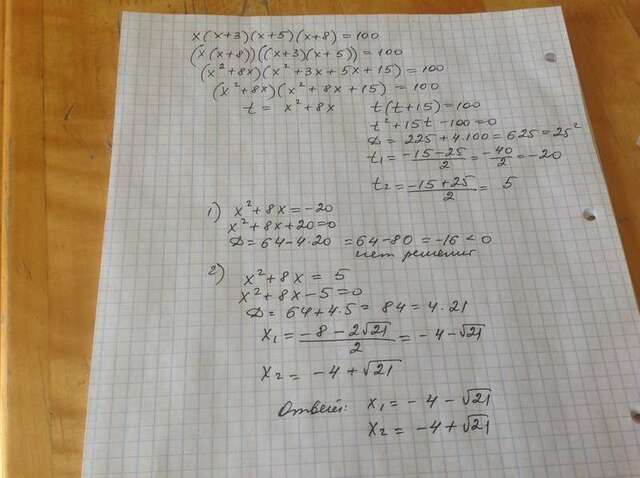 x(x+3)(x+5)(x+8)=100
(x(x+8))((x+3)(x+5))=100
(x²+8x)(x²+3x+5x+15)=100
(x²+8x)(x²+8x+15)=100
t = x²+8x t(t+15)=100
t²+15t-100=0
D = 225+4·100=625=25²
t₁ = (-15-25)/2 = -40/2 = -20
t₂ = (-15+25)/2 = 5
1) x²+8x=-20
x²+8x+20=0
D=64-4·20 =64-80=-16<0
нет решений
2) x²+8x = 5
x²+8x-5=0
D = 64+4·5 = 84 = 4·21
x₁ = (-8-2√21)/2 = -4-√21
x₂ = -4+√21
Ответ: x₁ = -4-√21
x₂ = -4+√21